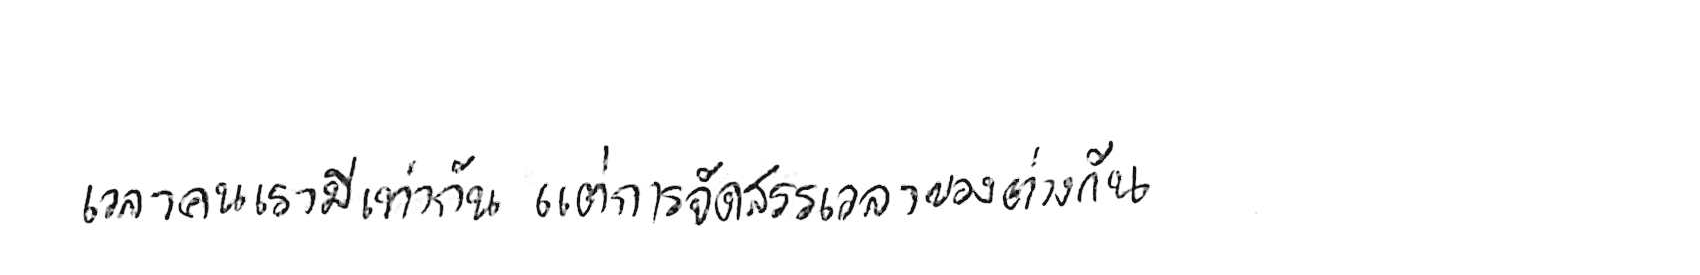 เวลาคนเรามีเท่ากัน แต่การจัดสรรเวลาของต่างกัน